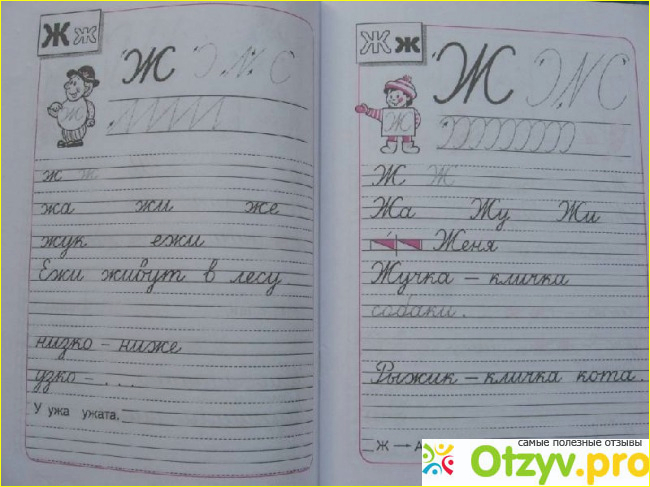 Ж ж
Ж
Ж
ж ж
жа жи же
жук ежи
Ежи живут в лесу
низко – ниже
узко – . . .
У ужа ужата.
Ж ж
Ж
Ж
Ж Ж
Жа Жу Жи
Женя
Жучка – кличка
собаки.
Рыжик – кличка кота.
Ж → А
самые полезные отзывы
Otzyv.pro